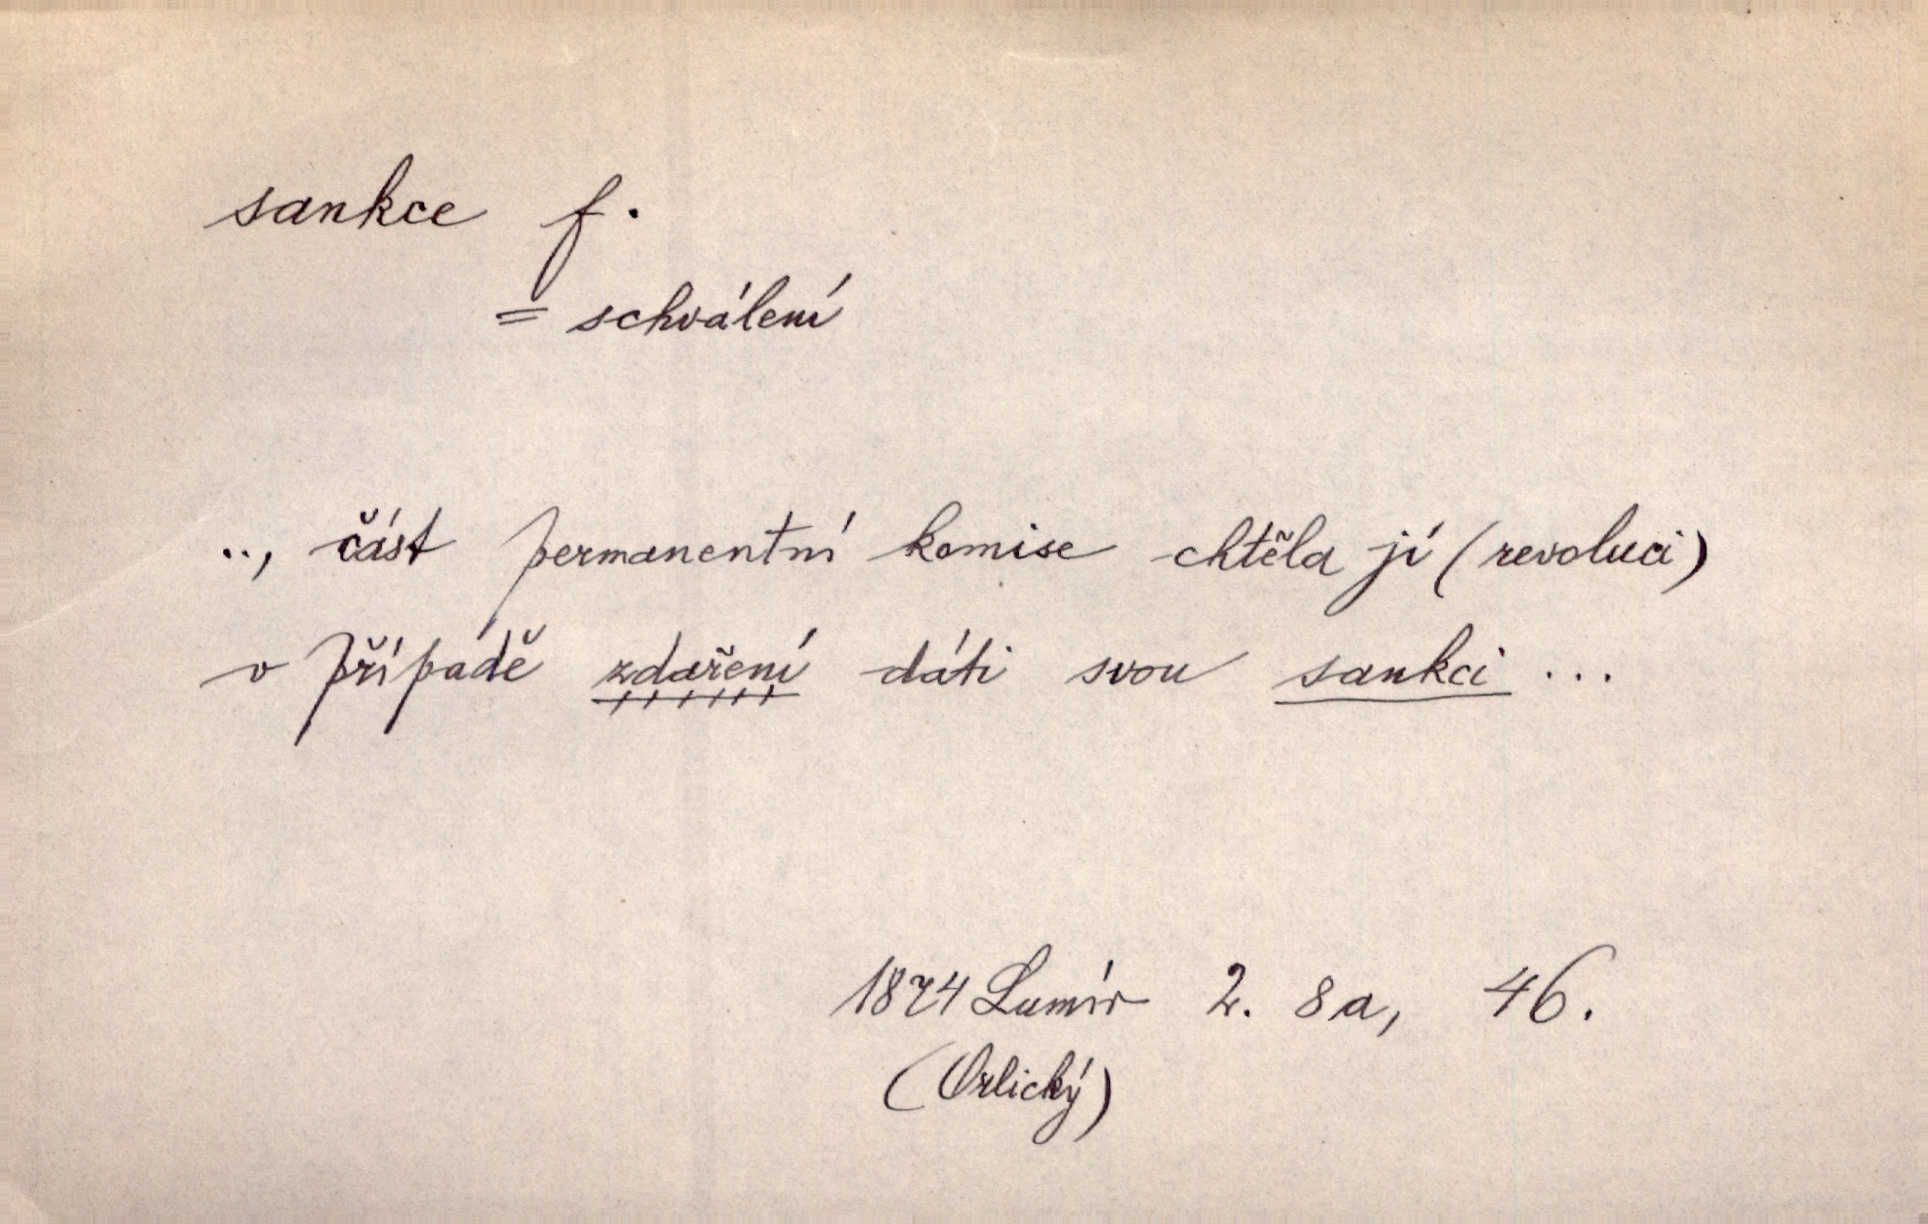 sankce f.
= schválení
.., část permanentní komise chtěla jí (revoluci)
v případě zdaření dáti svou sankci ...
1874 Lumír 2. 8a, 46.
(Orlický)